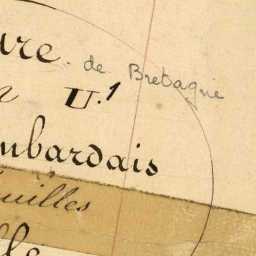 ure. de Bretagne
n U.1
mbardais
euilles
lle